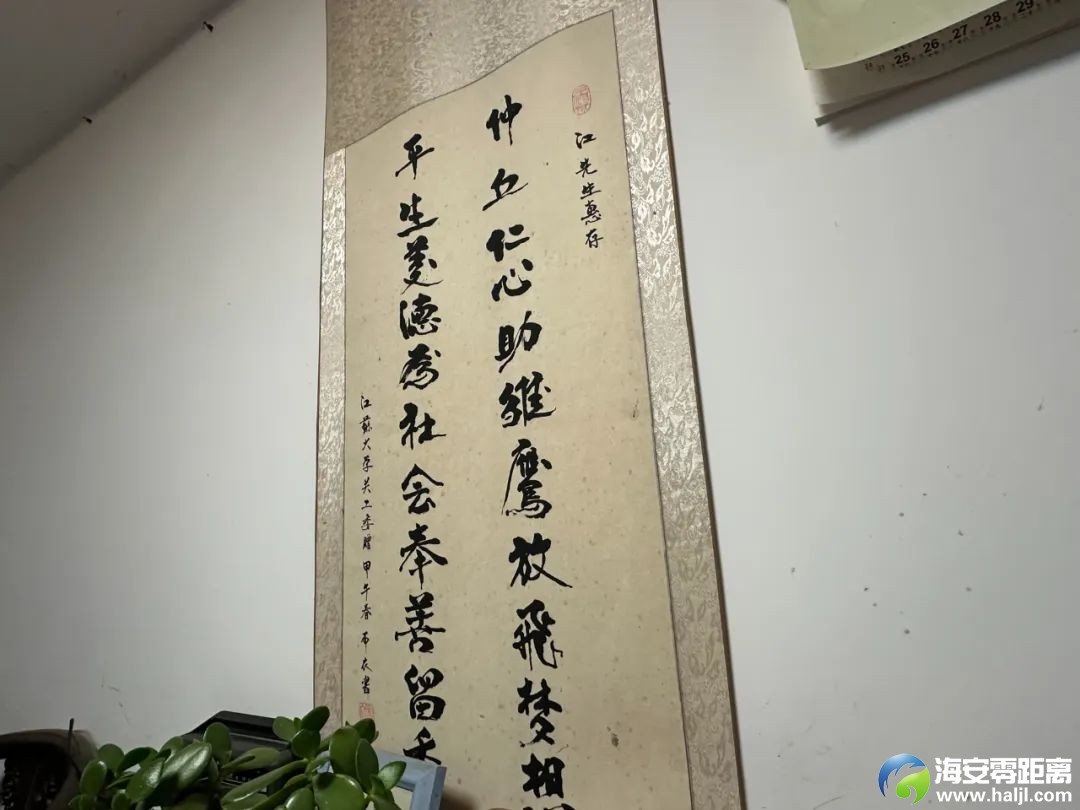 江先生惠存
仲丘仁心助雏鹰放飞梦相
平生美德为社会奉善留
江苏大学关工委赠 甲午春 布衣书
25 26 27 28 29
海安零距离
www.haljl.com